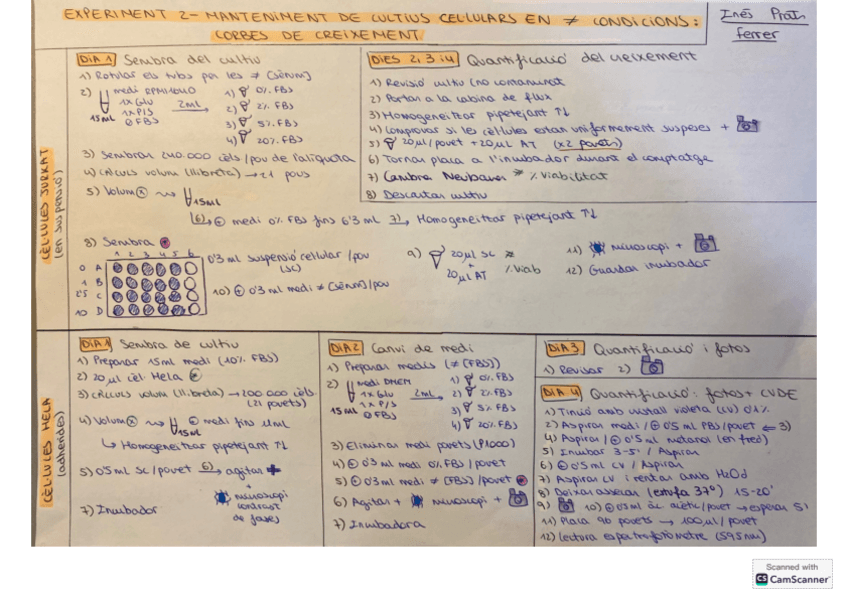 EXPERIMENT 2 - MANTENIMENT DE CULTIUS CEL·LULARS EN ≠ CONDICIONS:
CORBES DE CREIXEMENT
Inés Prats
Ferrer
CÈL·LULES JURKAT
(en suspensió)
DIA 1 Sembra del cultiu
1) Rotular els tubs per les ≠ [sèrum]
2) medi RPMI1640
1x Glu
1x P/S
0 FBS
15ml
2ml
1) 0% FBS
2) 2% FBS
3) 5% FBS
4) 20% FBS
3) Sembrar 240.000 cèls/pou de l'alíquota
4) Càlculs volum (llibreta) → 21 pous
5) Volum ⓧ
15ml
6) ⊕ medi 0% FBS fins 6'3 ml 7) Homogeneïtzar pipetejant ↑↓
8) Sembra
1 2 3 4 5 6
0 A
1 B
2'5 C
10 D
0'3 ml suspensió cel·lular/pou
(SC)
10) ⊕ 0'3 ml medi ≠ [sèrum]/pou
9) 20µl SC
+
20µL AT
% Viab
11) microscopi +
12) Guardar incubador
DIES 2, 3 i 4 Quantificació del creixement
1) Revisió cultiu (no contaminat)
2) Portar a la cabina de flux
3) Homogeneïtzar pipetejant ↑↓
4) Comprovar si les cèl·lules estan uniformement suspeses +
5) 20µl/pouet + 20µL AT (x2 pouets)
6) Tornar placa a l'incubador durant el comptatge
7) Cambra Neubauer % viabilitat
8) Descartar cultiu
CÈL·LULES HELA
(adherides)
DIA 1 Sembra de cultiu
1) Preparar 15ml medi (10% FBS)
2) 20µl cèl. Hela
3) Càlculs volum (llibreta) → 200.000 cèls
(21 pouets)
4) Volum ⓧ → ⊕ medi fins 11ml
15ml
↳ Homogeneïtzar pipetejant ↑↓
5) 0'5 ml SC/pouet 6) agitar
+ microscopi
contrast
de fases
7) Incubador
DIA 2 Canvi de medi
1) Preparar medis (≠ [FBS])
2) medi DMEM
1x Glu
1x P/S
0 FBS
15 ml
2ml
1) 0% FBS
2) 2% FBS
3) 5% FBS
4) 20% FBS
3) Eliminar medi pouets (P1000)
4) ⊕ 0'3 ml medi 0% FBS/pouet
5) ⊕ 0'3 ml medi ≠ [FBS]/pouet
6) Agitar + microscopi +
7) Incubadora
DIA 3 Quantificació i fotos
1) Revisar 2)
DIA 4 Quantificació: fotos + CVDE
1) Tinció amb cristall violeta (CV) 0'1%
2) Aspirar medi / ⊕ 0'5 ml PBS/pouet ⇐ 3)
4) Aspirar / ⊕ 0'5 ml metanol (en fred)
5) Incubar 3-5' / Aspirar
6) ⊕ 0'5 ml CV / Aspirar
7) Aspirar CV i rentar amb H2Od
8) Deixar assecar (estufa 37º) 15-20'
9) 10) ⊕ 0'5 ml àc. acètic/pouet → esperar 5'
11) Placa 96 pouets → 100µl/pouet
12) Lectura espectrofotòmetre (595nm)
Scanned with
CS CamScanner